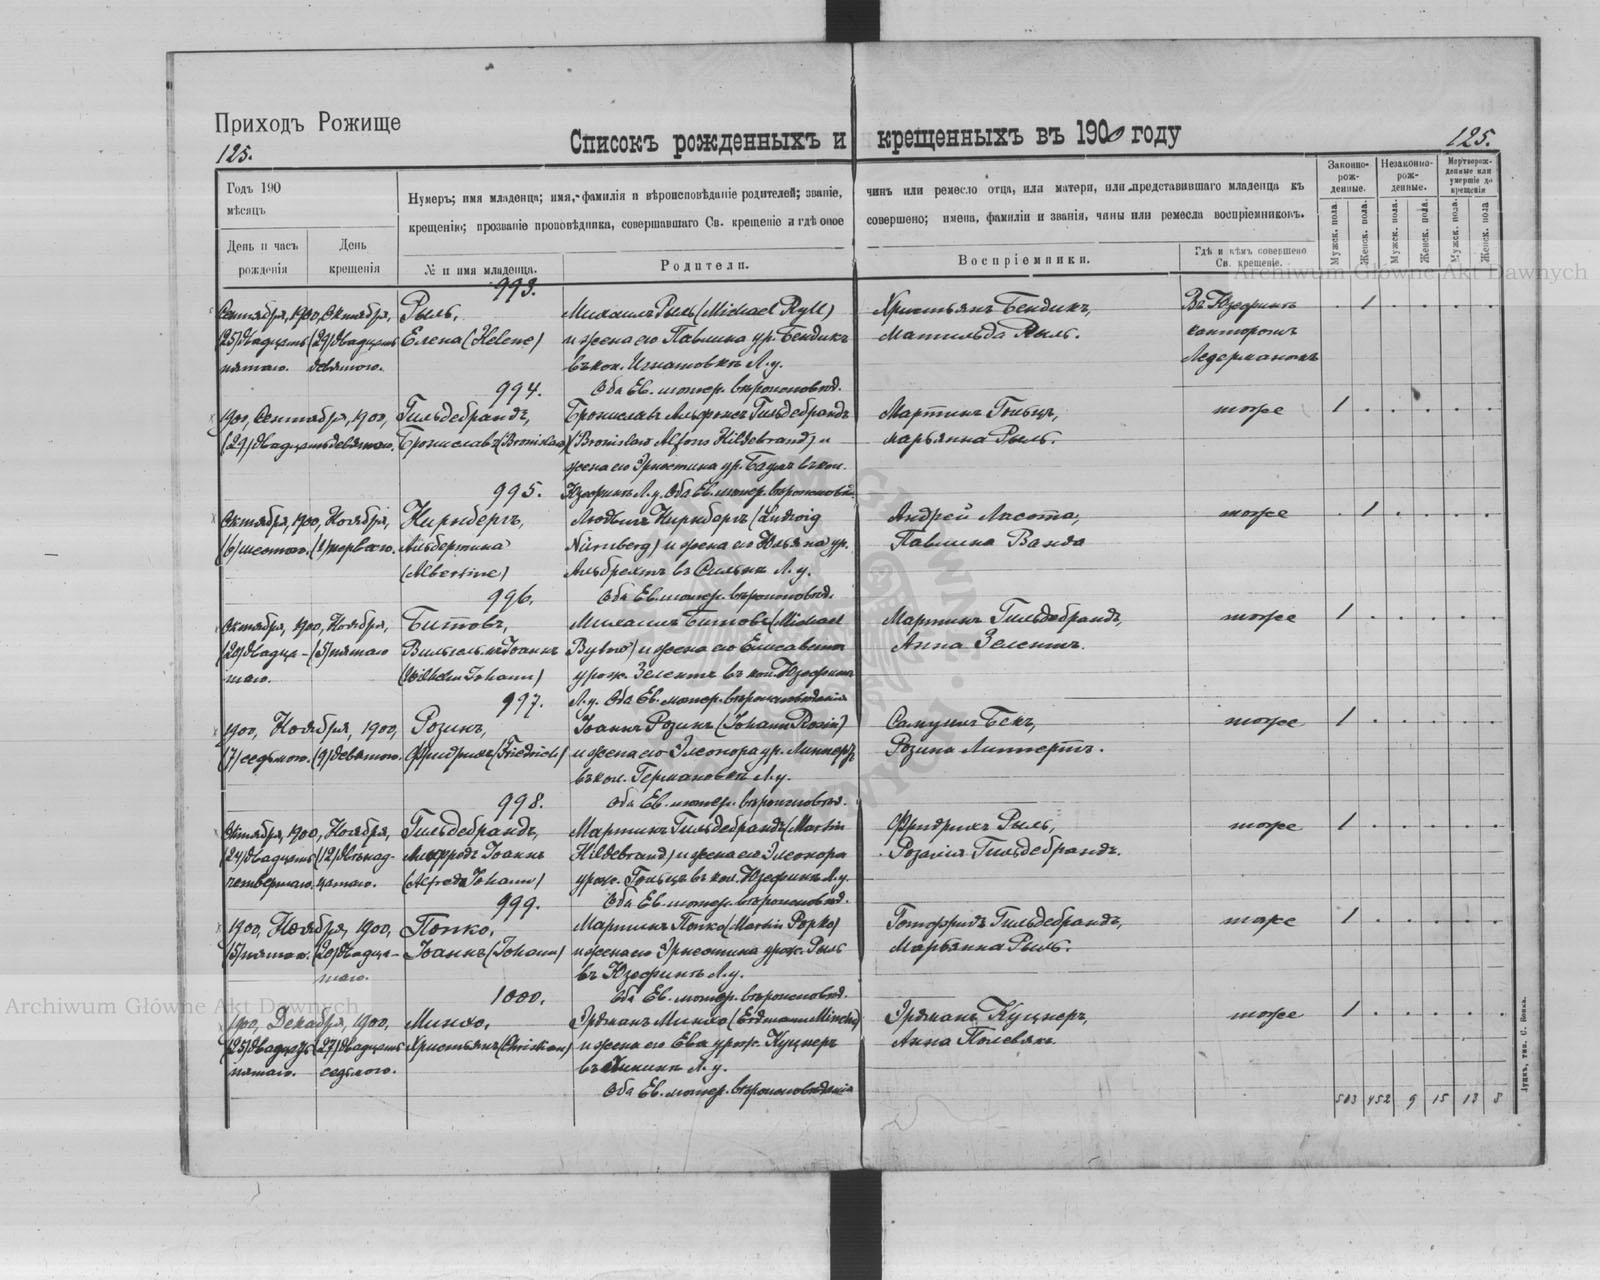 Приходъ Рожище
125.
Списокъ рожденныхъ и крещенныхъ въ 1900 году
125.
Годъ 190
мѣсяцъ
День и часъ рожденія
День крещенія
Нумеръ; имя младенца; имя, фамилія и вѣроисповѣданіе родителей; званіе, чинъ или ремесло отца, или матери, или представившаго младенца къ
крещенію; прозваніе проповѣдника, совершавшаго Св. крещеніе и гдѣ оное совершено; имена, фамиліи и званія, чины или ремесла воспріемниковъ.
№ и имя младенца.
Родители.
Воспріемники.
Гдѣ и кѣмъ совершено Св. крещеніе.
Законно-рож-денные.
Незаконно-рож-денные.
Мертворож-денные или умершіе до крещенія
Мужск. пола.
Женск. пола.
Мужск. пола.
Женск. пола.
Мужск. пола.
Женск. пола
993.
Сентября, 1900, Октября, Рыль, Михаилъ Рыль (Michael Ryll) Христьянъ Бендикъ, Въ Юзефинѣ 1
(25) двадцать (29) двадцать Елена (Helene) и жена его Павлина ур. Бендикъ Матильда Рыль. канторомъ
пятаго. девятого. въ кол. Игнатовкѣ Л. у. Ледерманомъ
994. Оба Ев. лютер. вѣроисповѣд.
1900, Сентября, 1900, Гильдебрандъ, Брониславъ Альфонсъ Гильдебрандъ Мартинъ Гольцъ, тоже 1
(29) двадцать девятого. Брониславъ (Bronislaw) (Bronislaw Alfons Hildebrand) и Марьянна Рыль.
жена его Эрнестина ур. въ кол.
995. Юзефинѣ Л. у. Оба Ев. лютер. вѣроисповѣд.
Октября, 1900, Ноября, Нирнбергъ, Людвигъ Нирнбергъ (Ludwig Андрей Ласота, тоже 1
(6) шестого. (1) первого. Альбертина Nürnberg) и жена его Юльяна ур. Павлина Ванда
(Albertine) Альбрехтъ въ Л. у.
996. Оба Ев. лютер. вѣроисповѣд.
Октября, 1900, Ноября, Битовъ, Михаилъ Битовъ (Michael Мартинъ Гильдебрандъ, тоже 1
(20) двадца- (5) пятаго Вильгельмъ Іоаннъ Bytow) и жена его Елисавета Анна Зелентъ.
таго. (Wilhelm Johann) урож. Зелентъ въ кол. Юзефинѣ
997. Л. у. Оба Ев. лютер. вѣроисповѣданія
1900, Ноября, 1900, Розинъ, Іоаннъ Розинъ (Johann Rosin) Самуилъ Бекъ, тоже 1
(7) седьмого. (9) девятого. Фридрихъ (Friedrich) и жена его Элеонора ур. Липпертъ Розина Липпертъ.
въ кол. Германовкѣ Л. у.
998. Оба Ев. лютер. вѣроисповѣд.
Октября, 1900, Ноября, Гильдебрандъ, Мартинъ Гильдебрандъ (Martin Фридрихъ Рыль, тоже 1
(24) двадцать (12) двѣнад- Альфредъ Іоаннъ Hildebrand) и жена его Элеонора Розалія Гильдебрандъ.
четвертаго. цатаго. (Alfred Johann) урож. Гольцъ въ кол. Юзефинѣ Л. у.
999. Оба Ев. лютер. вѣроисповѣд.
1900, Ноября, 1900, Попко, Мартинъ Попко (Martin Popko) Готфридъ Гильдебрандъ, тоже 1
(5) пятаго. (20) двадца- Іоаннъ (Johann) и жена его Эрнестина урож. Рыль Марьянна Рыль.
таго. въ Юзефинѣ Л. у.
1000. Оба Ев. лютер. вѣроисповѣд.
1900, Декабря, 1900, Минхо, Эрдманъ Минхо (Erdmann Mincho) Эрдманъ Куцнеръ, тоже 1
(25) двадцать (27) двадцать Христьянъ (Christian) и жена его Ева урож. Куцнеръ Анна Полевякъ.
пятаго. седьмого. Л. у.
Оба Ев. лютер. вѣроисповѣданія
503 452 9 15 13 8
Луцкъ, тип. С. Бонка.
Archiwum Główne Akt Dawnych
Archiwum Główne Akt Dawnych